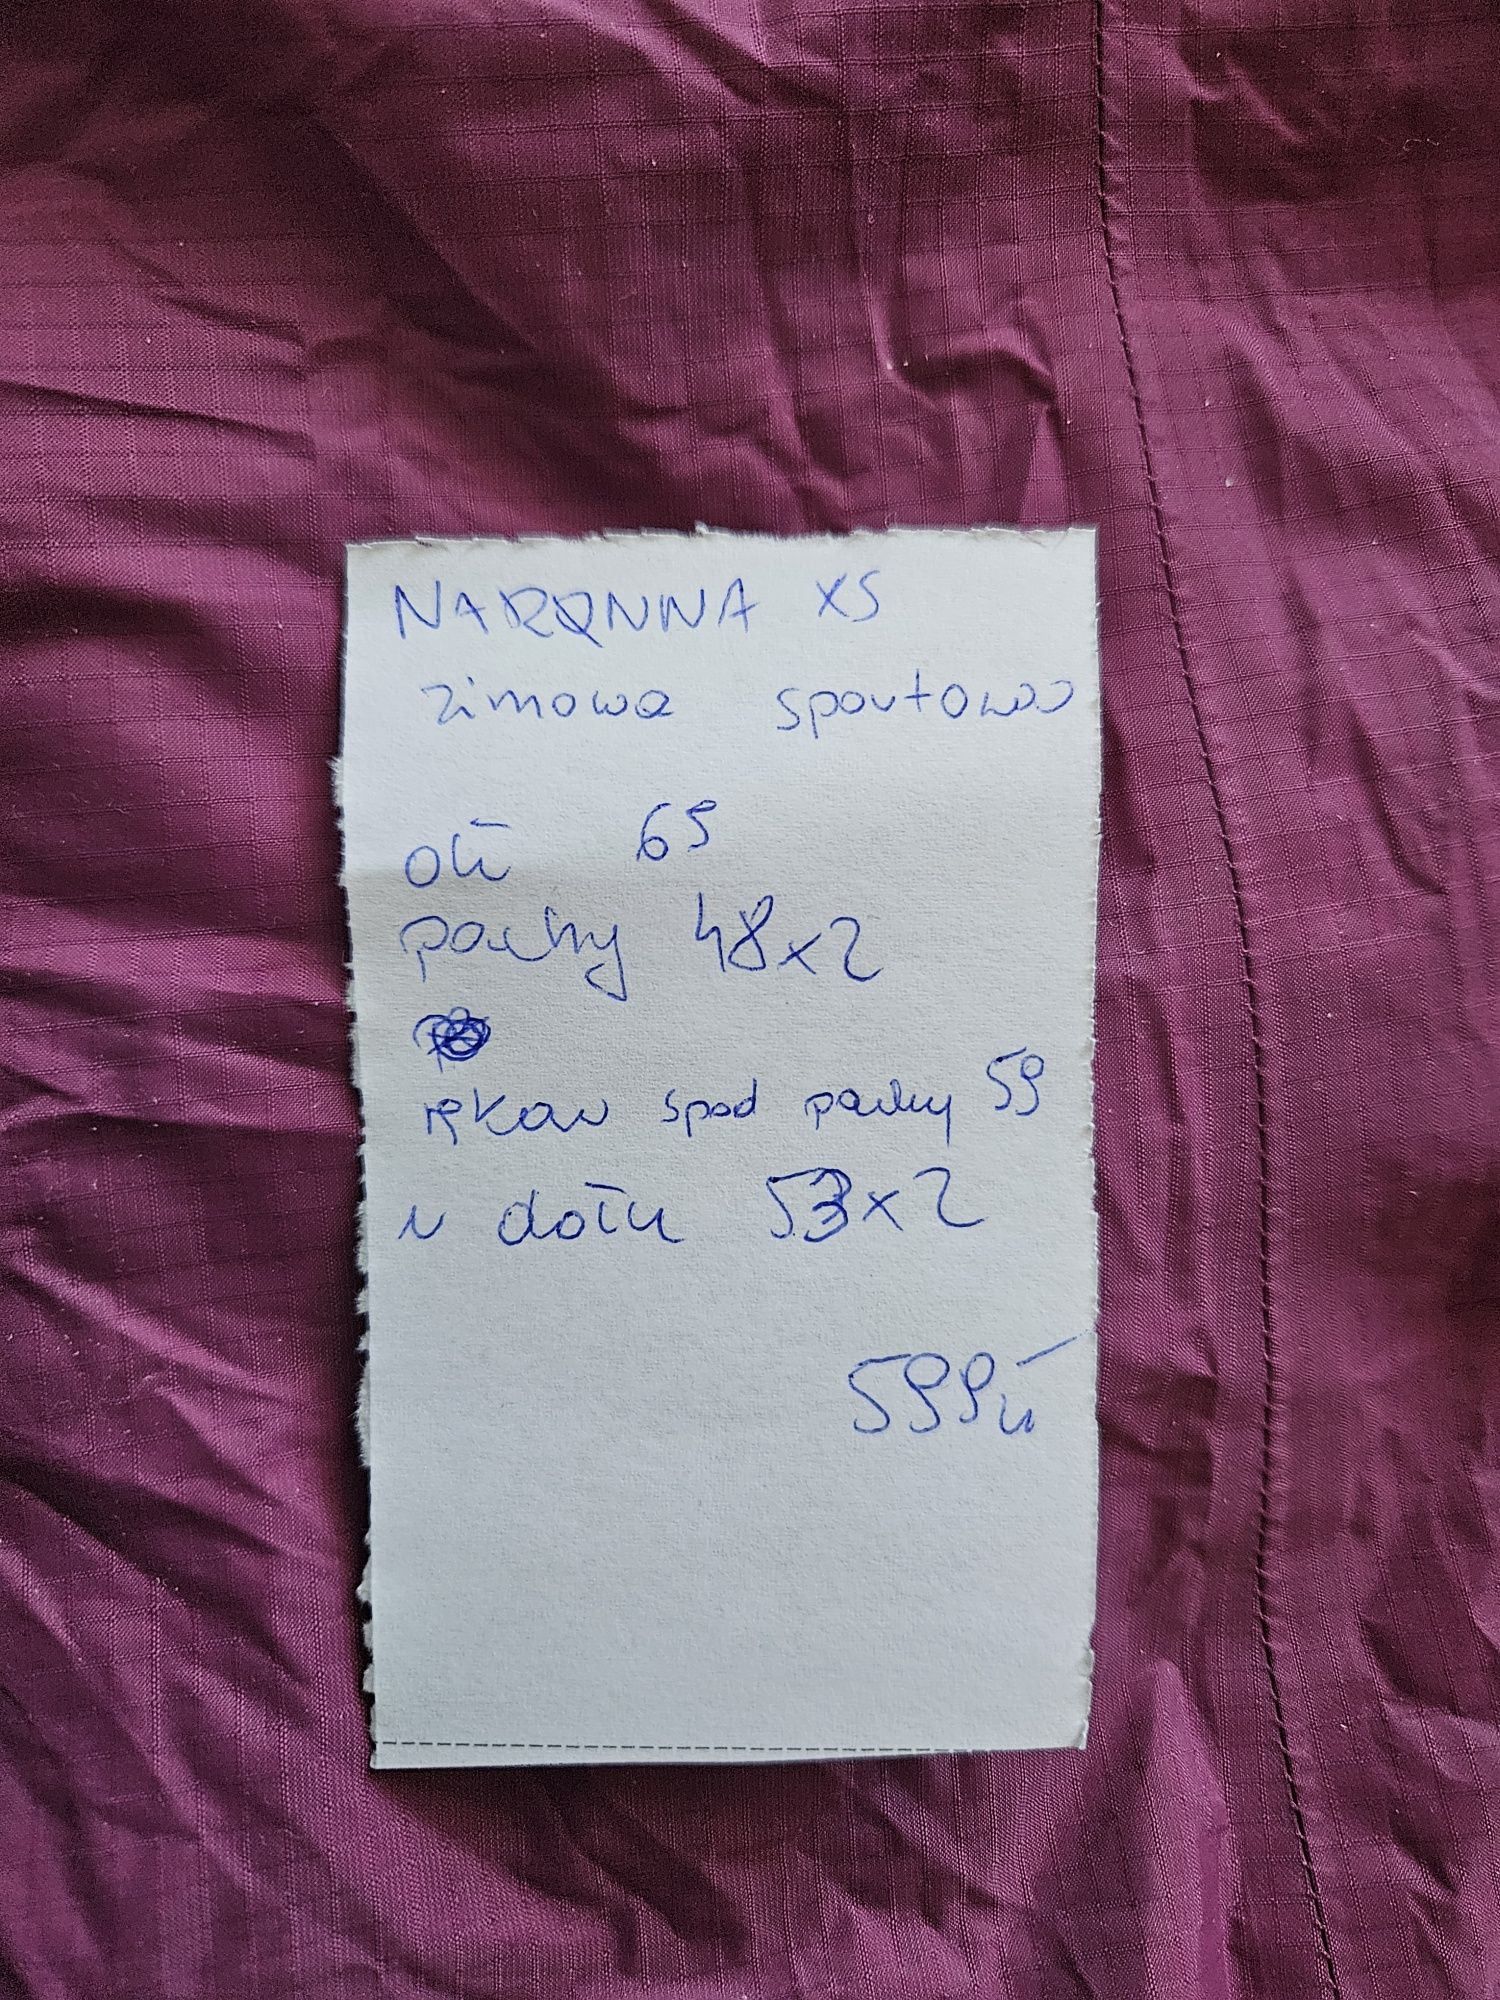 NARQNNA XS
zimowa sportowa
dł 65
pachy 48x2
rękaw spod pachy 59
u dołu 53x2
599zł